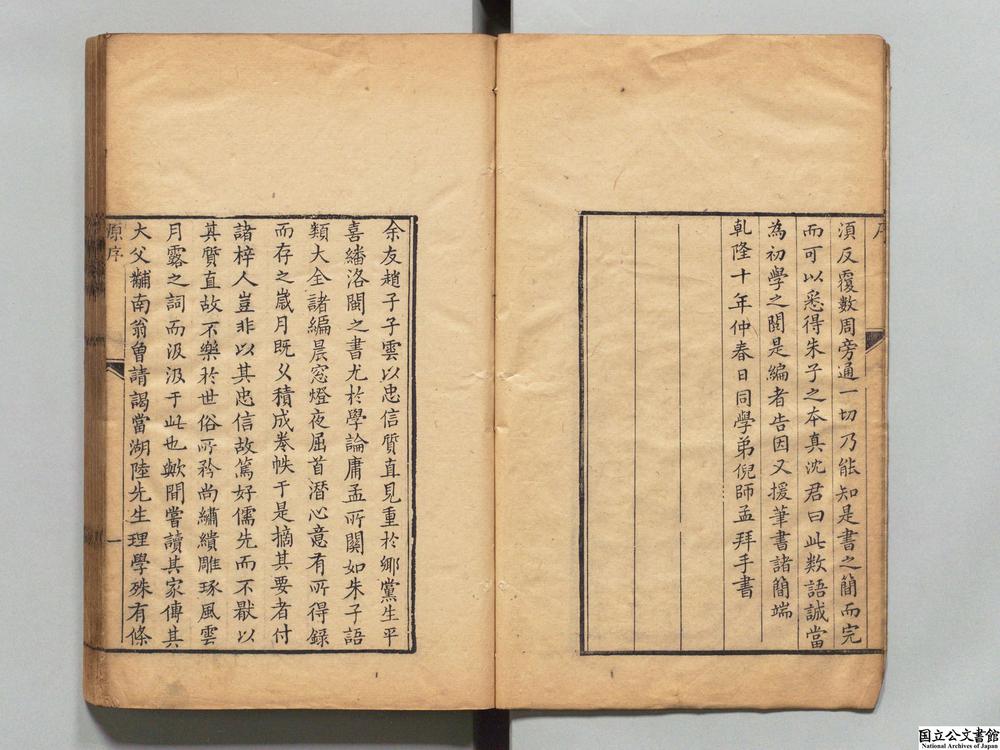 序
湏反覆數周旁通一切乃能知是書之簡而完
而可以悉得朱子之本真沈君曰此数語誠當
為初學之閱是編者告因又援筆書諸簡端
乹隆十年仲春日同學弟倪師孟拜手書
余友趙子子雲以忠信質直見重於鄉黨生平
喜繙洛閩之書尤於學論庸孟所関如朱子語
類大全諸編晨窓燈夜屈首潛心意有所得録
而存之嵗月既久積成卷帙于是摘其要者付
諸梓人豈非以其忠信故篤好儒先而不厭以
其質直故不樂於世俗所矜尚繡繢雕琢風雲
月露之詞而汲汲于此也歟間嘗讀其家傳其
大父黼南翁曾請謁當湖陸先生理學殊有條
原序
一
国立公文書館
National Archives of Japan